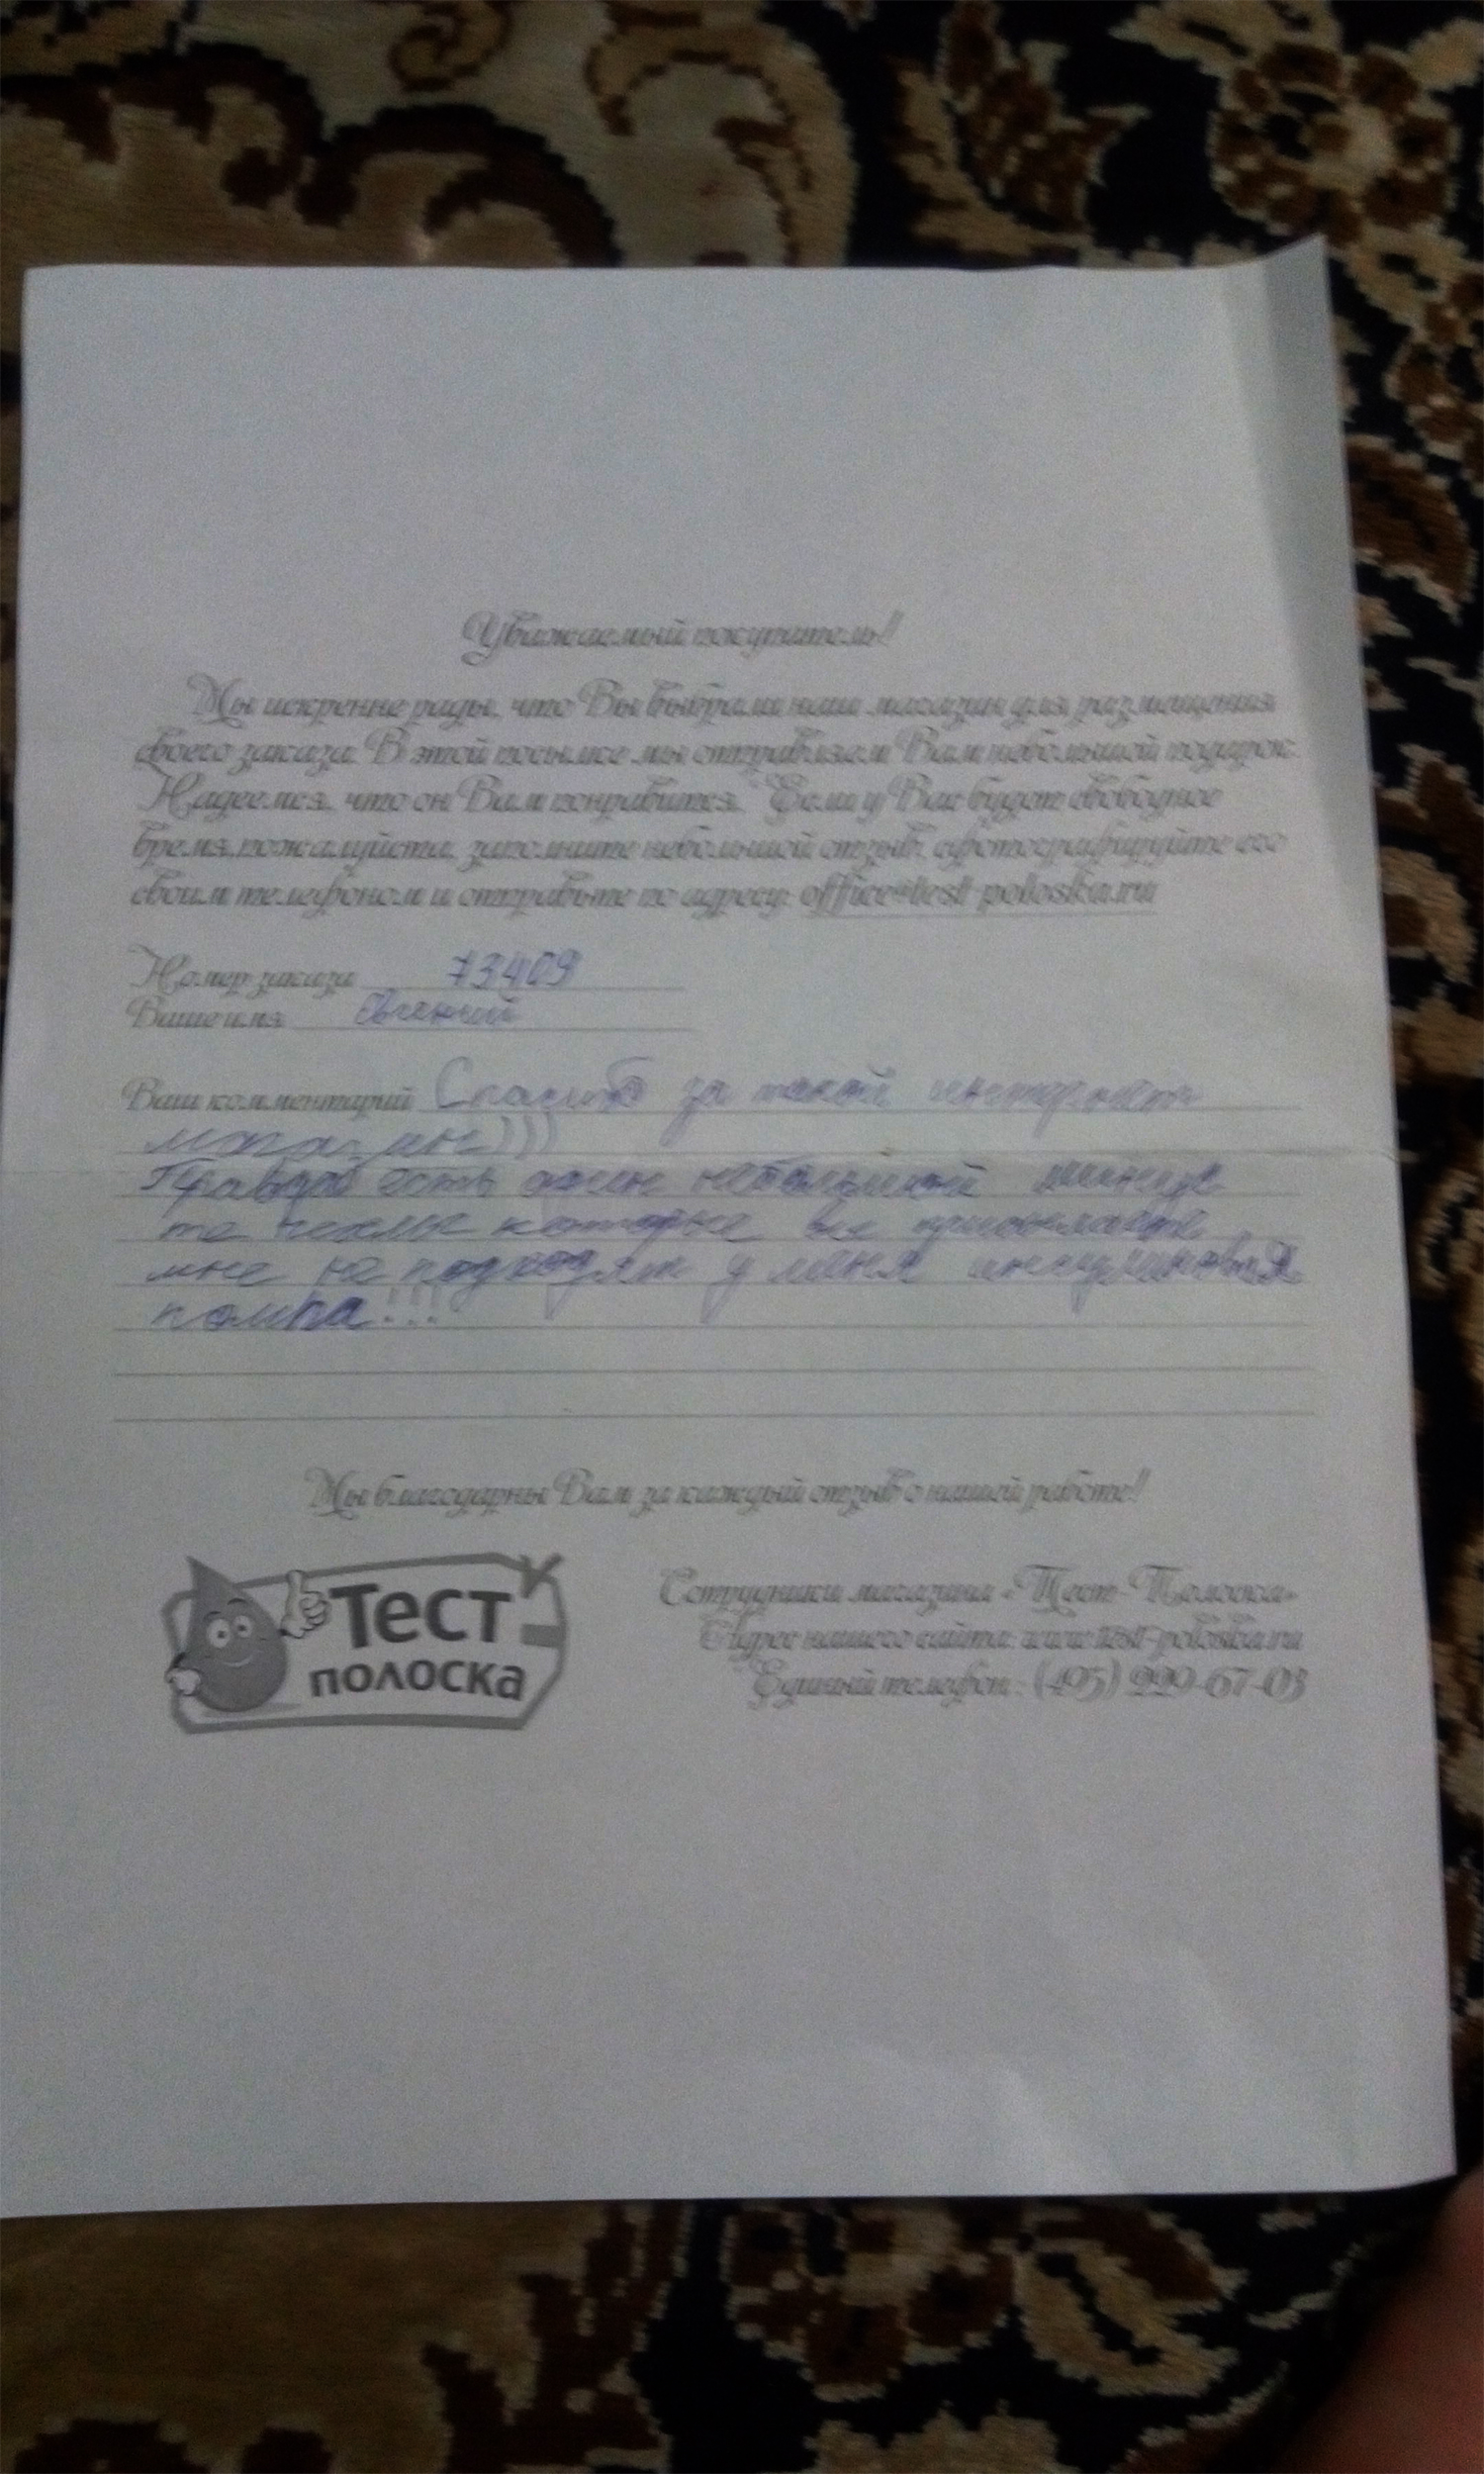 Уважаемый покупатель!
Мы искренне рады, что Вы выбрали наш магазин для размещения
своего заказа. В этой посылке мы отправляем Вам небольшой подарок.
Надеемся, что он Вам понравится. Если у Вас будет свободное
время, пожалуйста, заполните небольшой отзыв, сфотографируйте его
своим телефоном и отправьте по адресу: office@test-poloska.ru
Номер заказа 73409
Ваше имя Евгений
Ваш комментарий Спасибо за такой интернет
магазин)))
Правда есть один небольшой минус
те чехлы которые вы
мне не подходят у меня инсулиновая
помпа!!!
Мы благодарны Вам за каждый отзыв о нашей работе!
Тест
полоска
Сотрудники магазина «Тест-Полоска»
Адрес нашего сайта: www.test-poloska.ru
Единый телефон: (495) 229-67-03